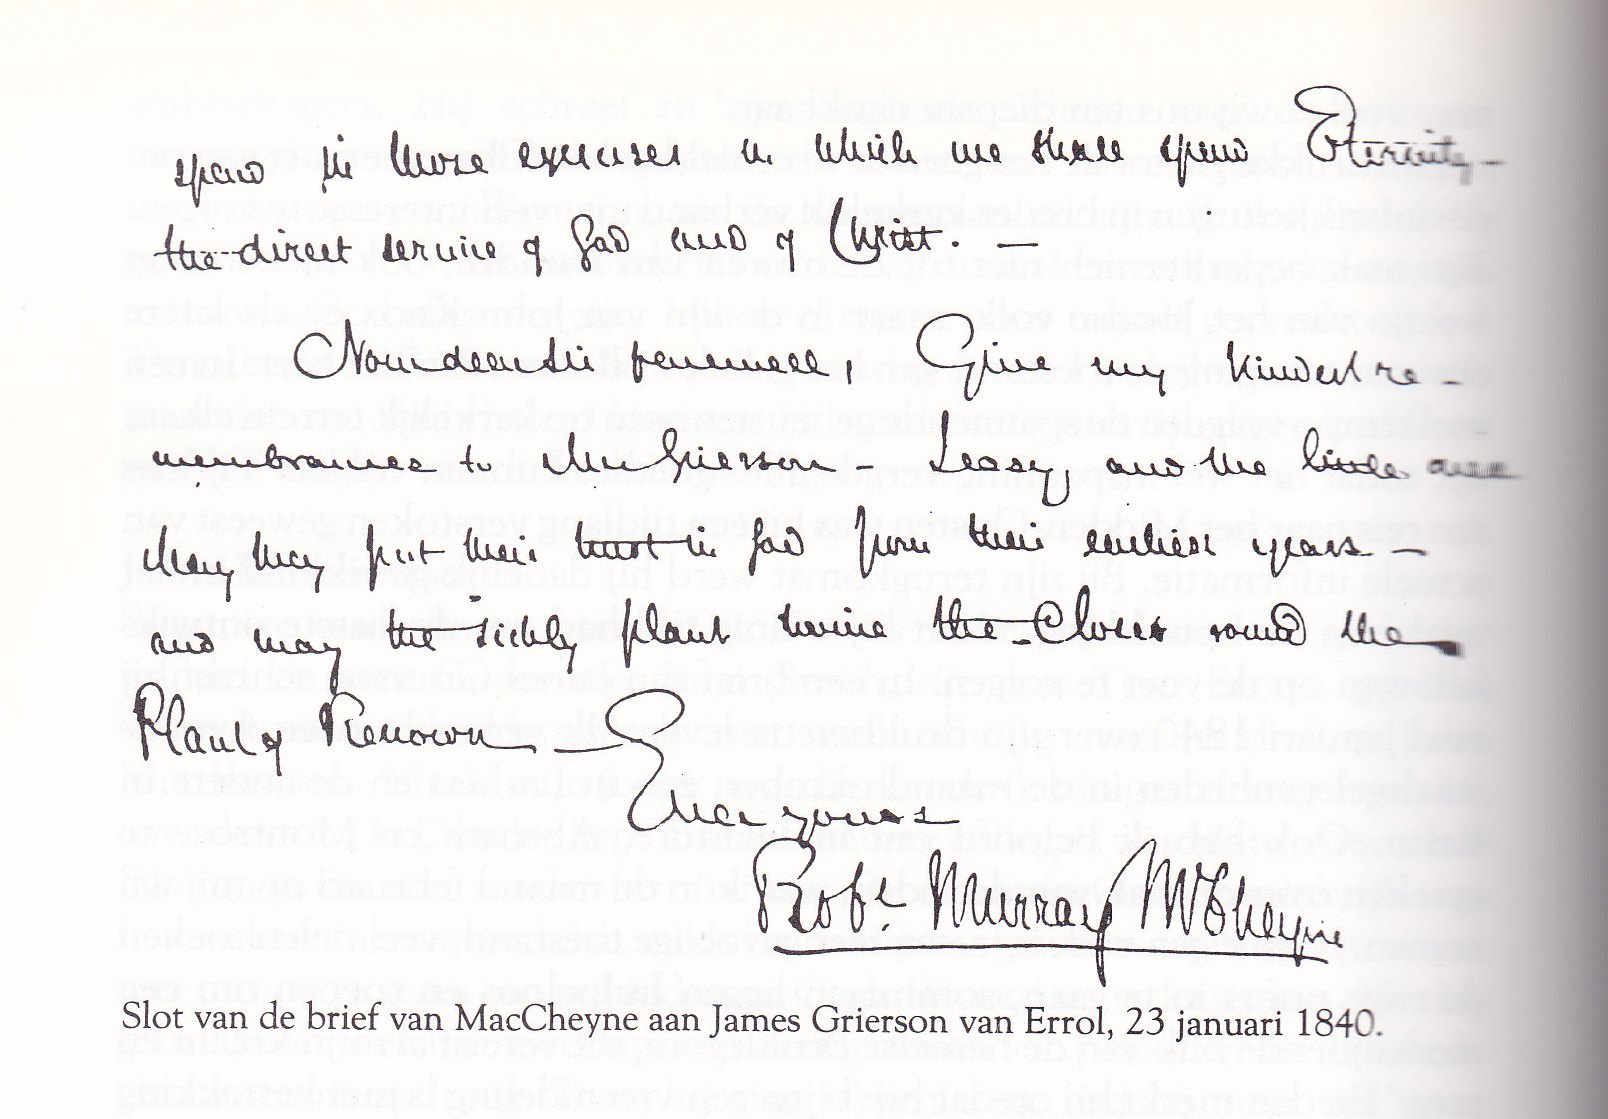 spend in those exercises in which we shall spend Eternity –
the direct service of God and of Christ. –
Now dear Sir farewell, Give my kindest re-
membrances to Mrs Grierson – and the little ones
they may put their trust in God from their earliest years –
and may the sickly plant twine the closer round the
Plant of Renown – Ever yours
Robt. Murray McCheyne
Slot van de brief van MacCheyne aan James Grierson van Errol, 23 januari 1840.